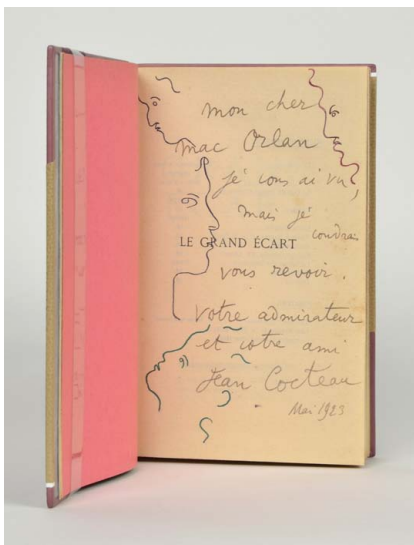 mon cher
mac Orlan
je vous ai vu,
mais je
voudrais
LE GRAND ÉCART
vous revoir.
votre admirateur
et votre ami
Jean Cocteau
Mai 1923